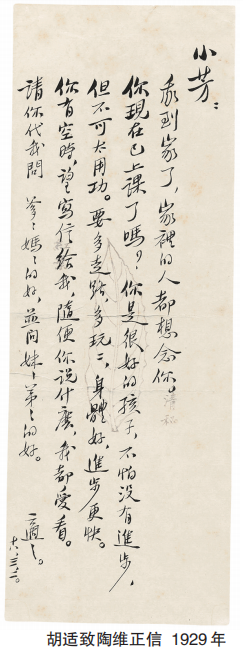 小芳：
我到家了，家裡的人都想念你。
你現在已上課了嗎？你是很好的孩子，不怕没有進步，
但不可太用功。要多走路，多玩玩，身體好，進步更快。
你有空時，望寫信給我，隨便你說什麽，我都愛看。
請你代我問 爹々媽々的好，並問妹々弟々的好。
適之。
十八.三.二。
胡适致陶维正信 1929年